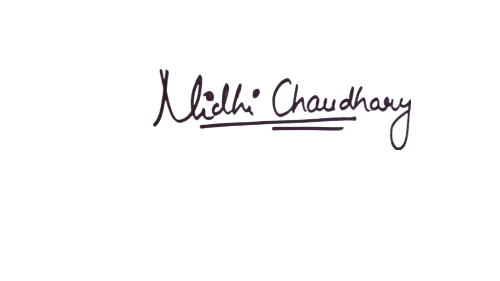 Nidhi Chaudhary